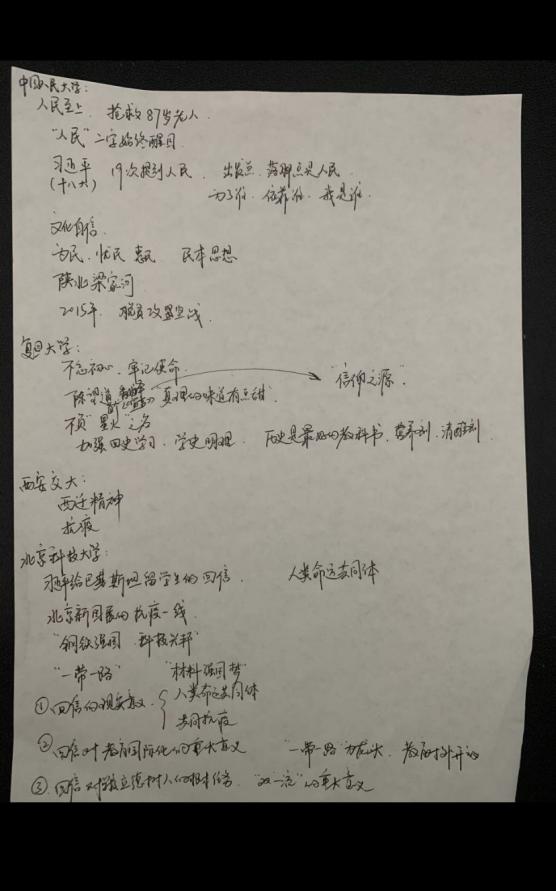 中国人民大学：
人民至上 抢救87岁老人
“人民”二字始终醒目
习近平 19次提到人民 出发点、落脚点是人民
(十八大) 为了谁、依靠谁、我是谁
文化自信
为民、忧民、惠民 民本思想
陕北梁家河
2015年 脱贫攻坚战
复旦大学：
不忘初心、牢记使命
“陈望道 “真理的味道有点甜” “信仰之源”
不负“星火”之名
加强四史学习、学史明理 历史是最好的教科书、营养剂、清醒剂
西安交大：
西迁精神
抗疫
北京科技大学：
习近平给巴基斯坦留学生的回信 人类命运共同体
北京新国展的抗疫一线
“钢铁强国 科技兴邦”
“一带一路” “材料强国梦”
①回信的现实意义 人类命运共同体
共同抗疫
②回信对教育国际化的重大意义 “一带一路” 教育对外开放
③回信对学校立德树人的根本任务 “双一流”的重大意义